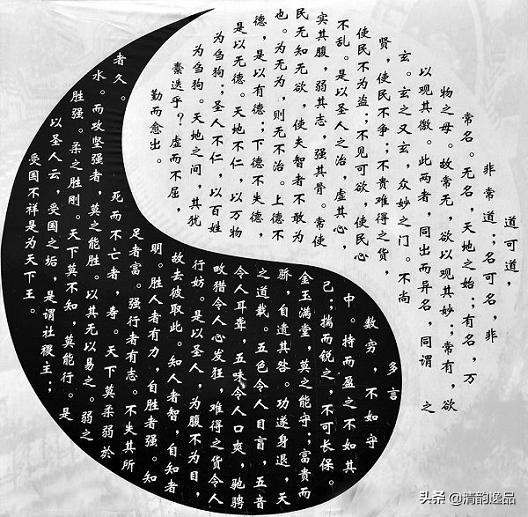 道可道，
非常道；名可名，非
常名。无名，天地之始；有名，万
物之母。故常无，欲以观其妙；常有，欲
以观其徼。此两者，同出而异名，同谓之
玄。玄之又玄，众妙之门。不尚
贤，使民不争；不贵难得之货，
使民不为盗；不见可欲，使民心
不乱。是以圣人之治，虚其心，
实其腹，弱其志，强其骨。常使
民无知无欲，使夫智者不敢为
也。为无为，则无不治。上德不
德，是以有德；下德不失德，
是以无德。天地不仁，以万物
为刍狗；圣人不仁，以百姓
为刍狗。天地之间，其犹
橐迭乎？虚而不屈，
勤而愈出。
多言
数穷，不如守
中。持而盈之不如其
己；揣而锐之，不可长保。
金玉满堂，莫之能守；富贵而
骄，自遗其咎。功遂身退，天
之道哉。五色令人目盲，五音
令人耳聋，五味令人口爽，驰骋
畋猎令人心发狂，难得之货令人
行妨。是以圣人，为腹不为目，
故去彼取此。知人者智，自知者
明。胜人者有力，自胜者强。知
足者富。强行者有志。不失其所
者久。死而不亡者，寿。天下莫柔弱於
水。而攻坚强者，莫之能胜。以其无以易之。弱之
胜强。柔之胜刚。天下莫不知，莫能行。是
以圣人云，受国之垢，是谓社稷主；
受国不祥是为天下王。
头条@清韵逸品